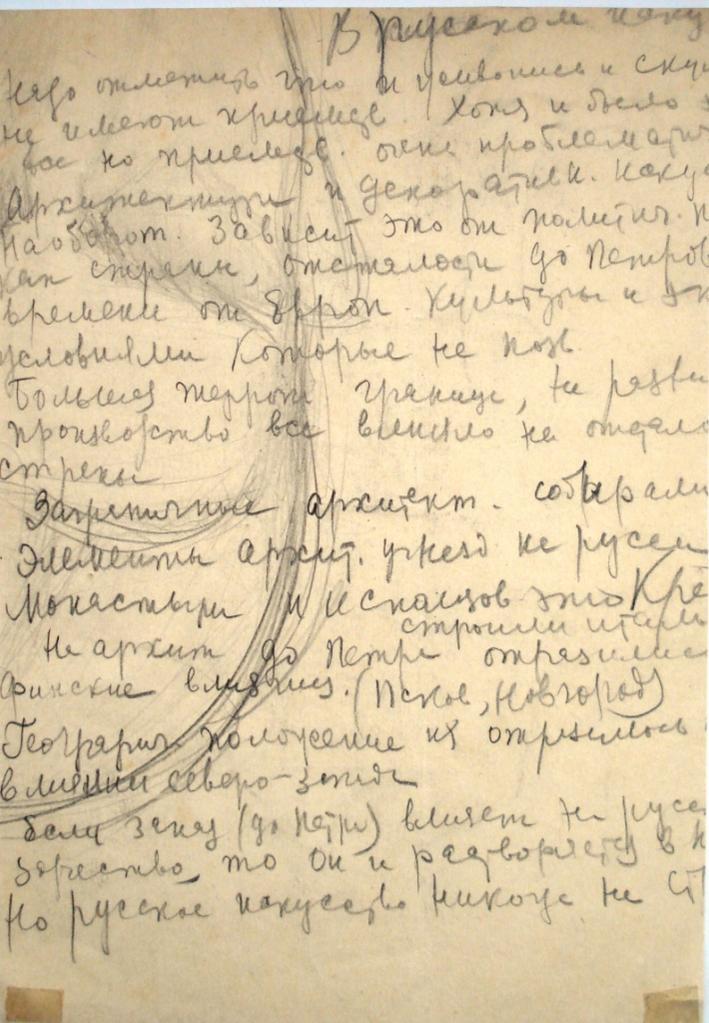 В русском иску
Надо отметить что и живопись и скул
не имеют приемств. Хотя и было
все но приемств. очень проблематич
Архитектуры и декоратив.
Наоборот. Зависит это от политич. п
как страны, отсталости до Петров
времени от Европ. культуры и эк
условиями которые не позв.
Большая террит граница, не разви
производство все влияло на отдало
страны
Заграничные архитект. собирали
Элементы архит.
Монастыри и исканцов это Кре
строили италь
На архит до Петра отразились
финские влияния. (Псков, Новгород)
Географич. положение их отразилось
влиянии северо-запада
Если запад (до Петра) влияет на русс
зодчество, то он и растворяется в н
Но русское искусство никогда не ст